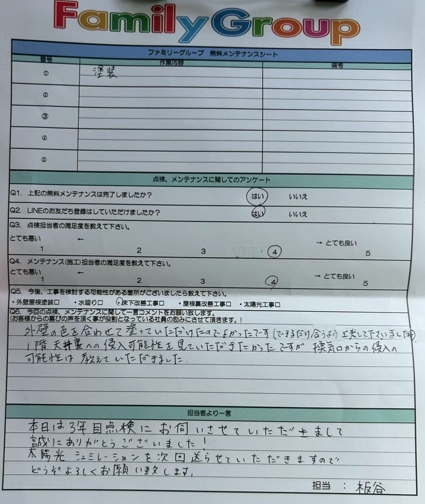 FamilyGroup
ファミリーグループ 無料メンテナンスシート
番号 作業内容 備考
① 塗装
②
③
④
⑤
点検、メンテナンスに関してのアンケート
Q1. 上記の無料メンテナンスは完了しましたか? はい いいえ
Q2. LINEのお友だち登録はしていただけましたか? はい いいえ
Q3. 点検担当者の満足度を教えて下さい。
とても悪い ← → とても良い
1 2 3 4 5
Q4. メンテナンス(施工)担当者の満足度を教えて下さい。
とても悪い ← → とても良い
1 2 3 4 5
Q5. 今後、工事を検討する可能性がある箇所がございましたら教えて下さい。
・外壁屋根塗装□ ・水廻り□ ・床下改善工事□ ・屋根裏改善工事□ ・太陽光工事□
Q6. 今回の点検、メンテナンスに関して一言コメントをお願い致します。
(お客様からの喜びの声を頂く事が役割となっている社員の励みにさせて頂きます。)
外壁の色を合わせて塗っていただけたのでよかったです
1階天井裏への侵入可能性も見ていただきたかったですが 換気口からの侵入の
可能性は教えていただきました
担当者より一言
本日は3年目点検にお伺いさせていただきまして
誠にありがとうございました!
太陽光シュミレーションを次回送らせていただきますので
どうぞよろしくお願い致します。
担当 : 板谷